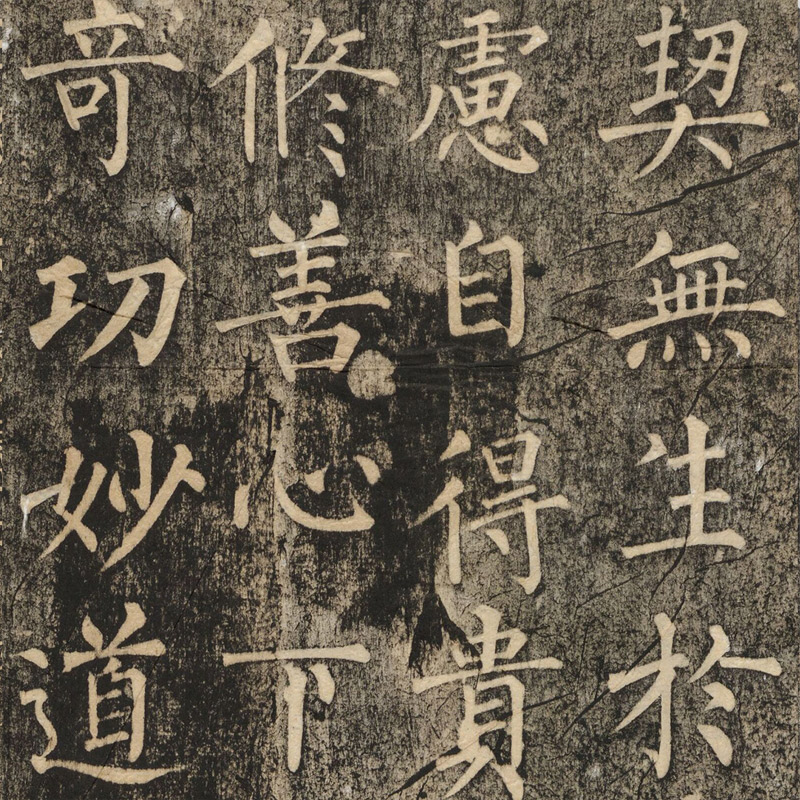 契無生於
慮自得貴
修善心下
竒㓛妙道